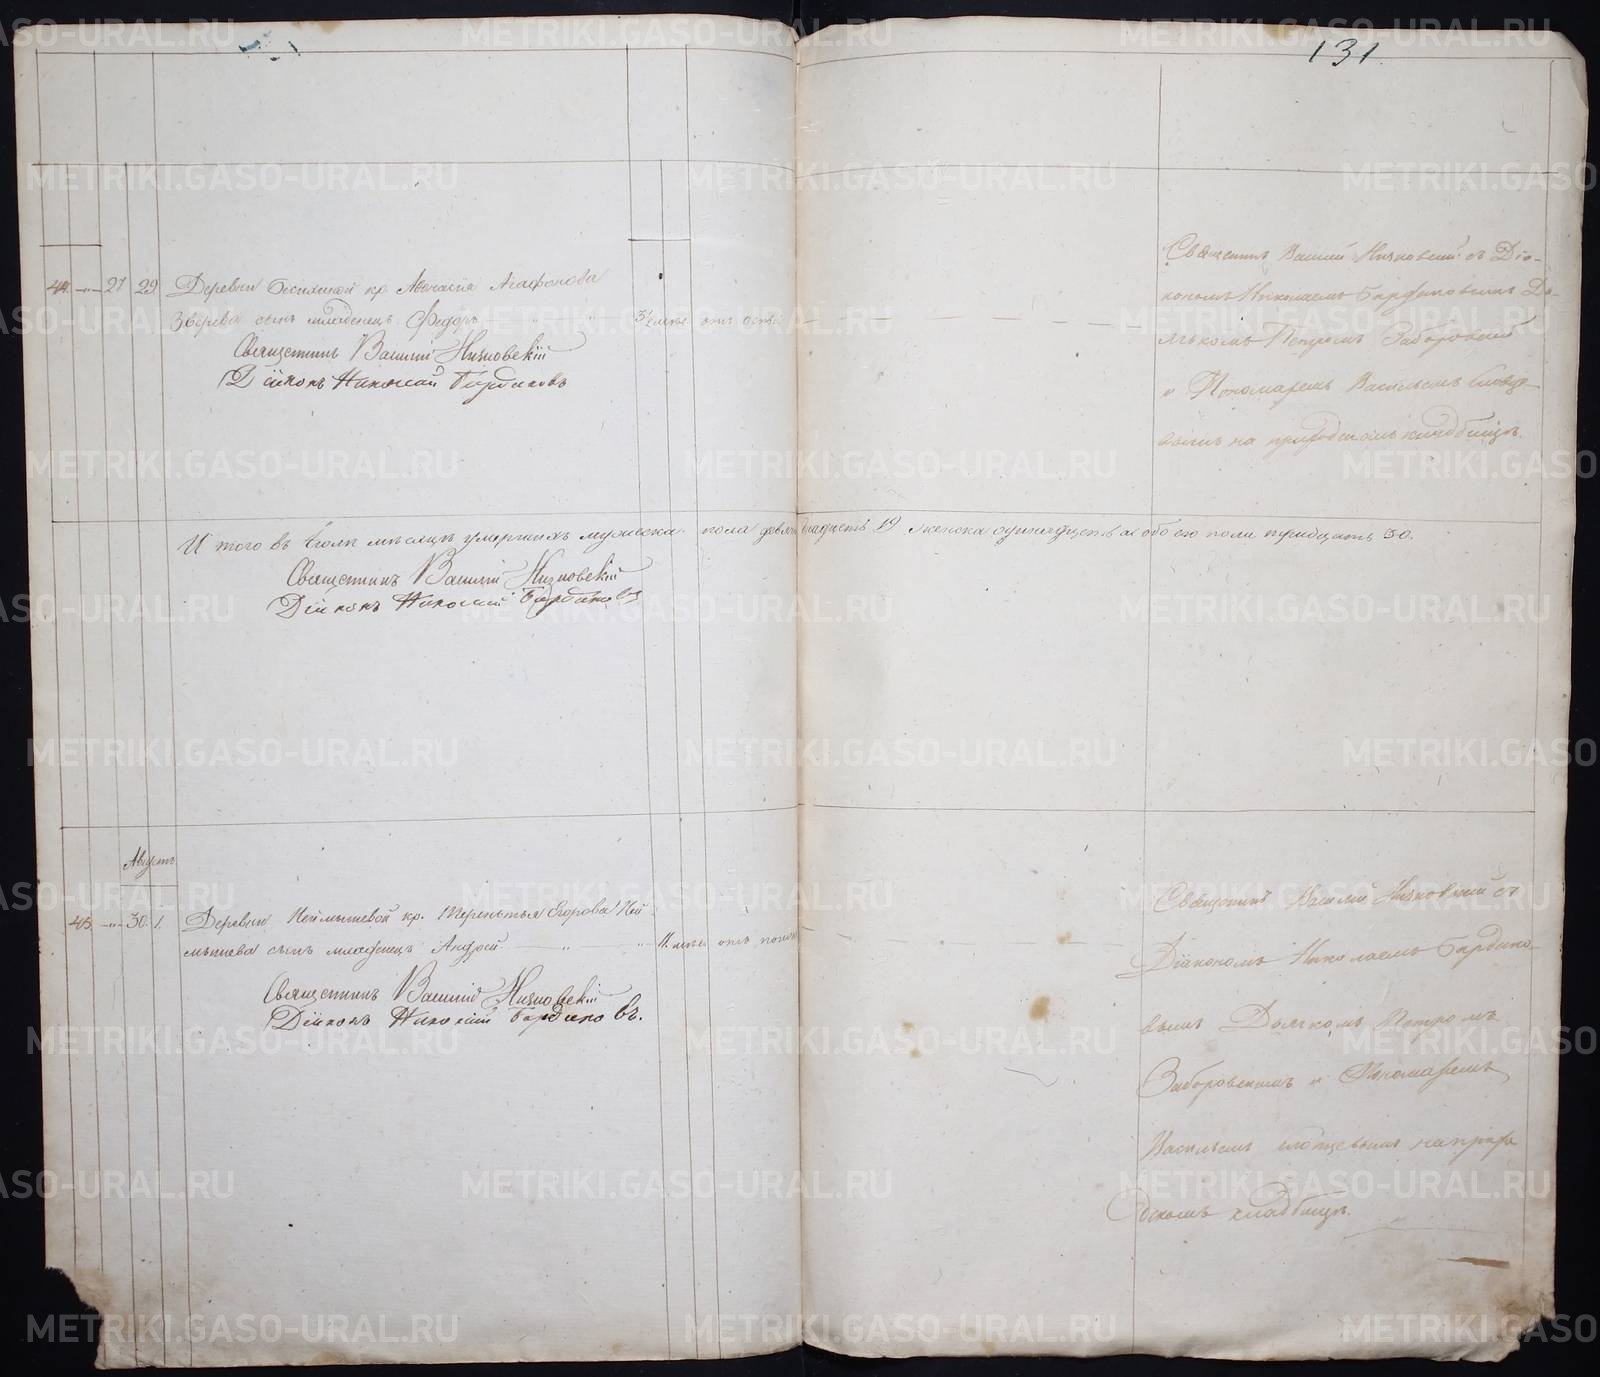 131.
44. -"- 27 29 Деревни кр. Аѳанасія Агафонова
Зверева сынъ младенецъ Федоръ " " 3 1/2 мѣс. отъ оспы
Священникъ Василій Низковскій
Діаконъ Николай Бирдюковъ
Священникъ Василій Низковскій съ Діа-
кономъ Николаемъ Дья-
чкомъ Петромъ Заборовскимъ
и Пономаремъ Васильемъ
вымъ на приходскомъ кладбищѣ.
И того въ Іюлѣ мѣсяцѣ умершихъ мужеска пола девятнадцать 19 женска одинадцать а обоего пола тридцать 30.
Священникъ Василій Низковскій
Діаконъ Николай
Августъ
45. -"- 30. 1. Деревни Неймышевой кр. Терентья Егорова Ней-
мышева сынъ младенецъ Андрей " " 11. мѣс. отъ поносу
Священникъ Василій Низковскій
Діаконъ Николай
Священникъ Василій Низковскій съ
Діакономъ Николаемъ
вымъ Дьячкомъ Петромъ
Заборовскимъ и Пономаремъ
Васильемъ на прихо
дскомъ кладбищѣ.
METRIKI.GASO-URAL.RU